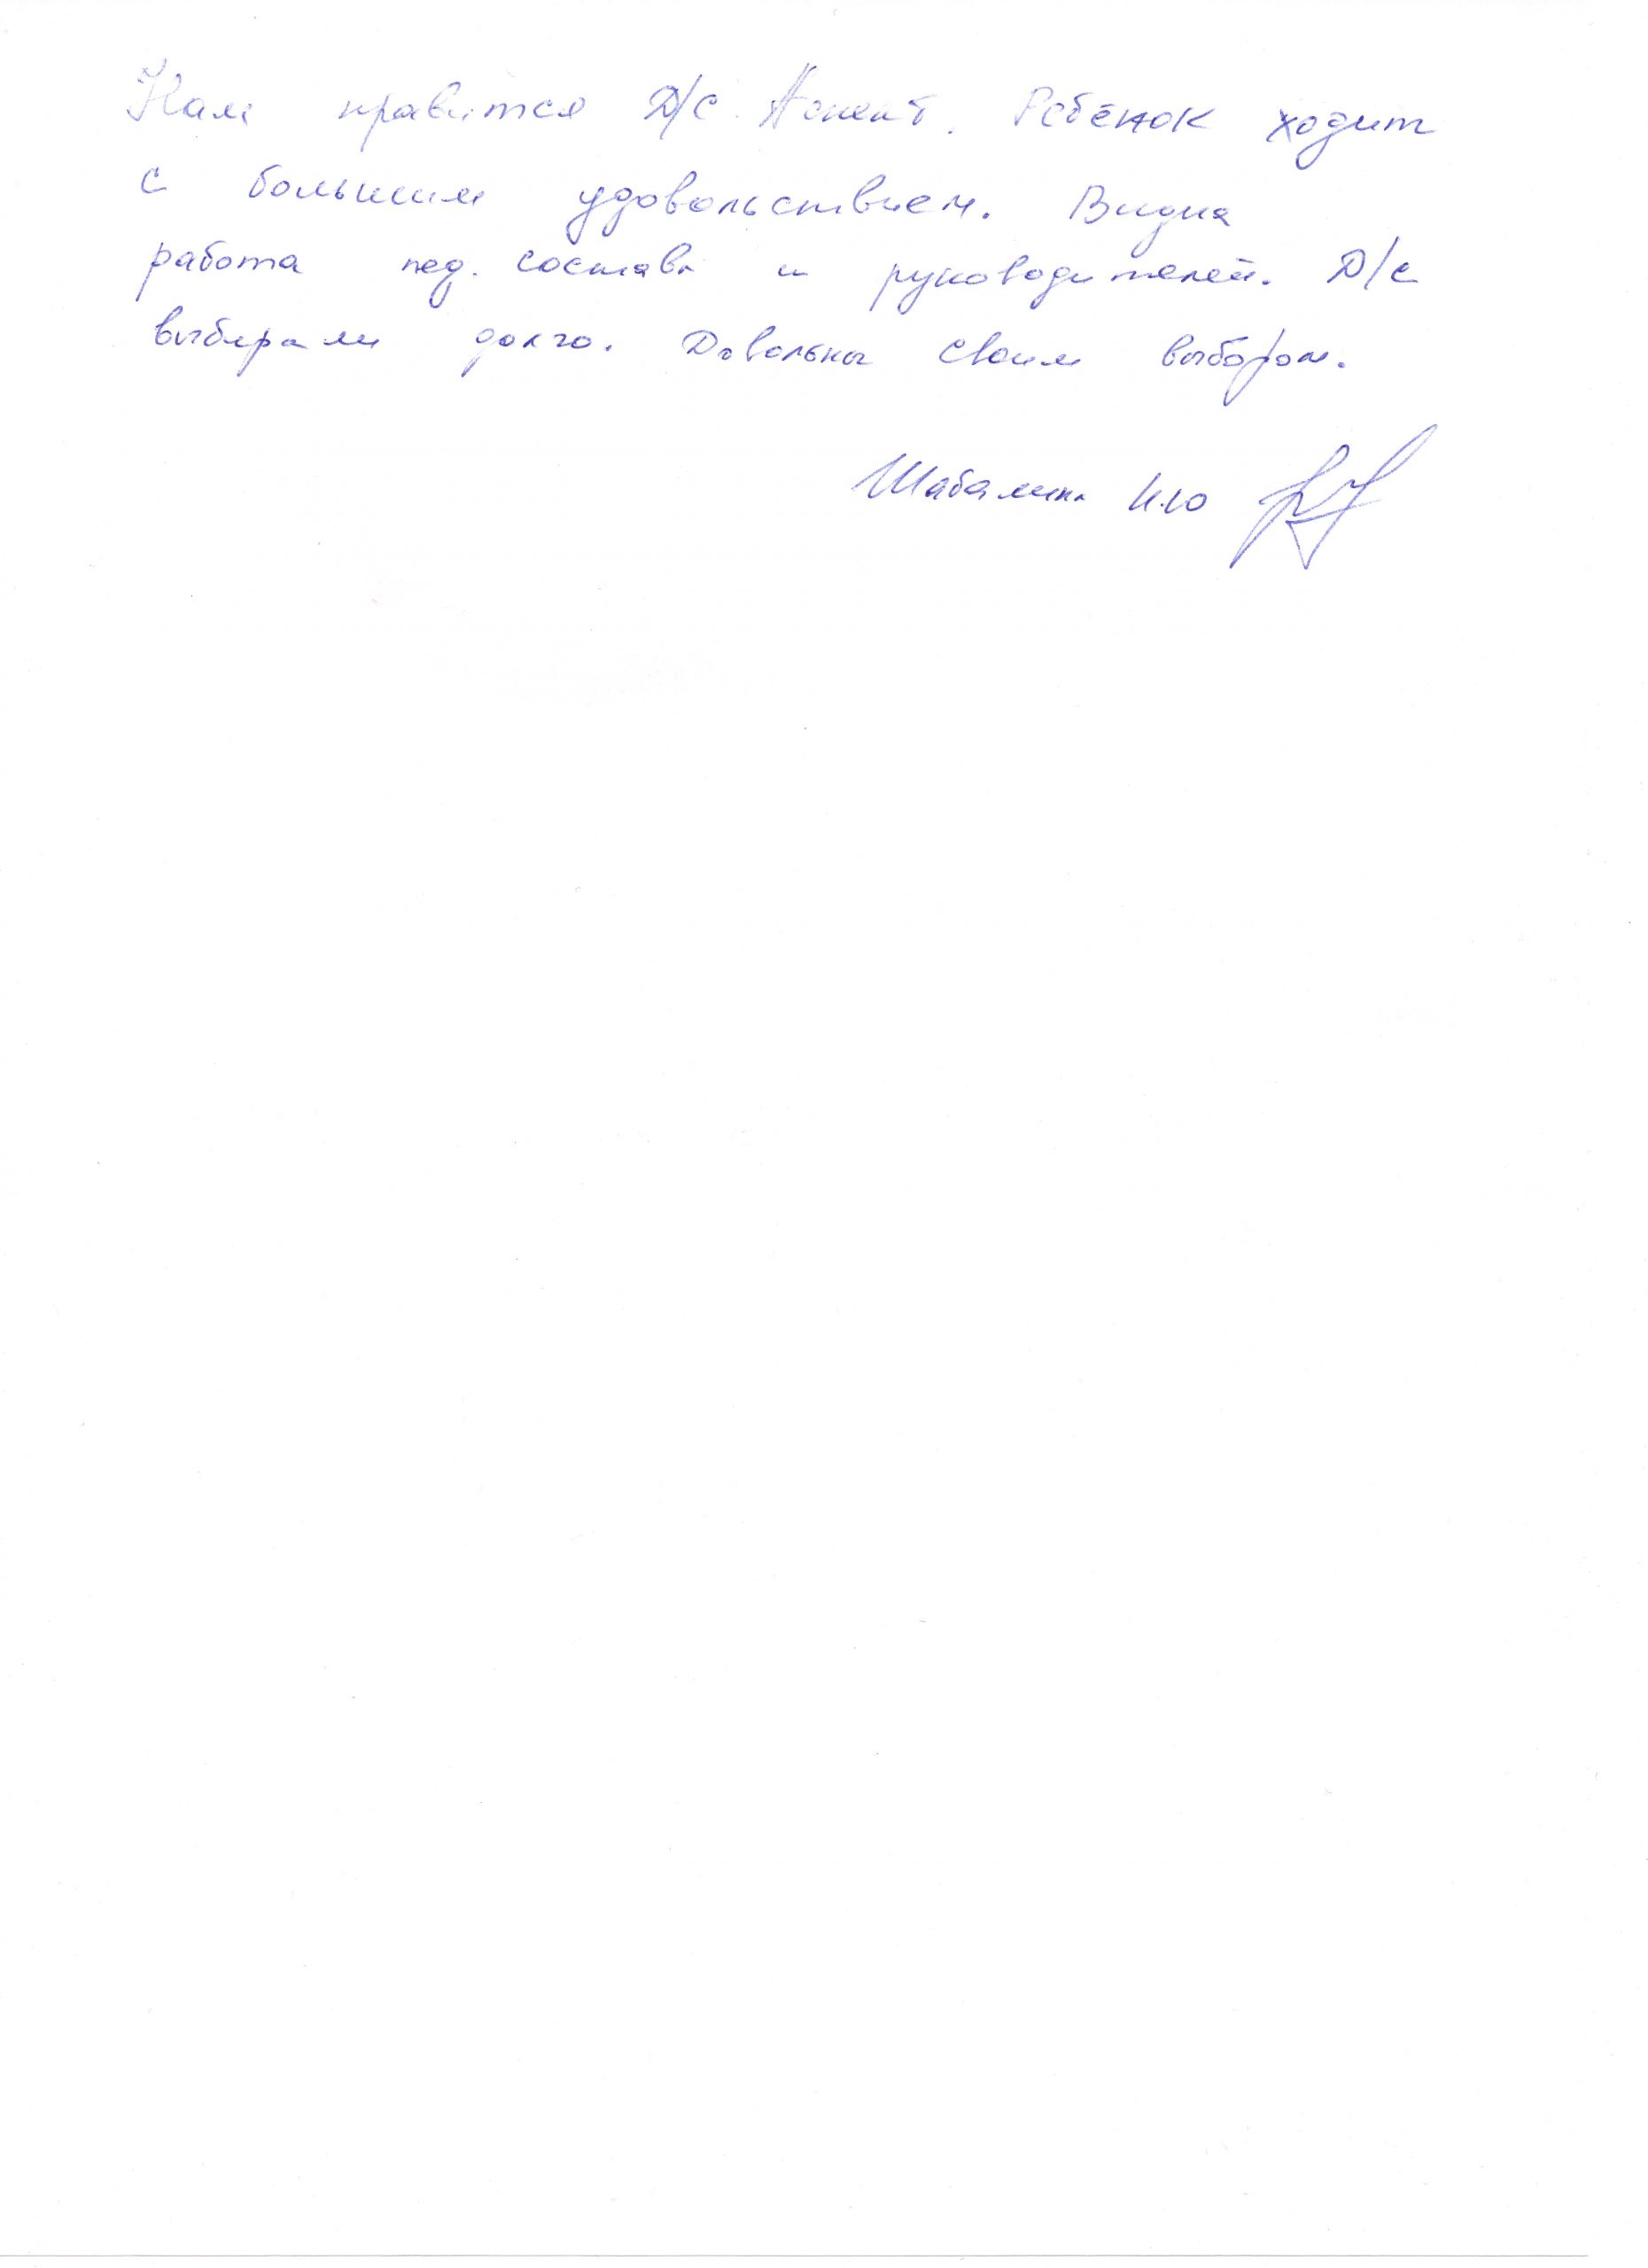 Нам нравится Д/С Аспект. Ребёнок ходит
с большим удовольствием. Видна
работа пед. состава и руководителей. Д/с
выбирали долго. Довольны своим выбором.
Шабалина И.Ю